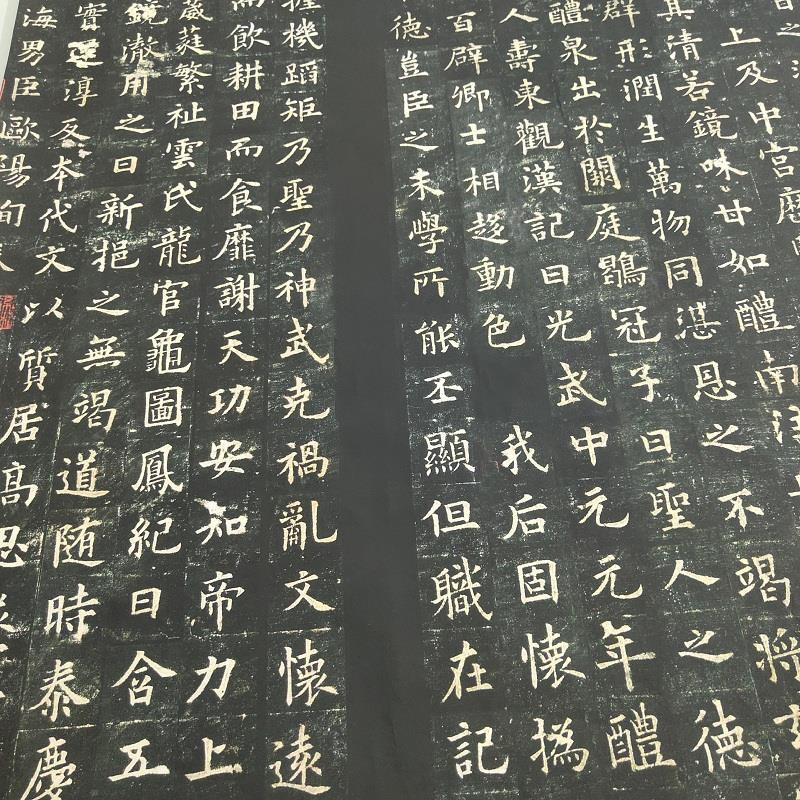 上及中宮歷
其清若鏡味甘如醴南注
群形潤生萬物同湛恩之不竭將
醴泉出於闕庭鶡冠子曰聖人之德
人壽東觀漢記曰光武中元元年醴
百辟卿士相趍動色我后固懷撝
德豈臣之末學所能丕顯但職在記
握機蹈矩乃聖乃神武克禍亂文懷遠
而飲耕田而食靡謝天功安知帝力上
葳蕤繁祉雲氏龍官龜圖鳳紀日含五
鏡澈用之日新挹之無竭道随時泰慶
實還淳反本代文以質居高思
海男臣歐陽詢